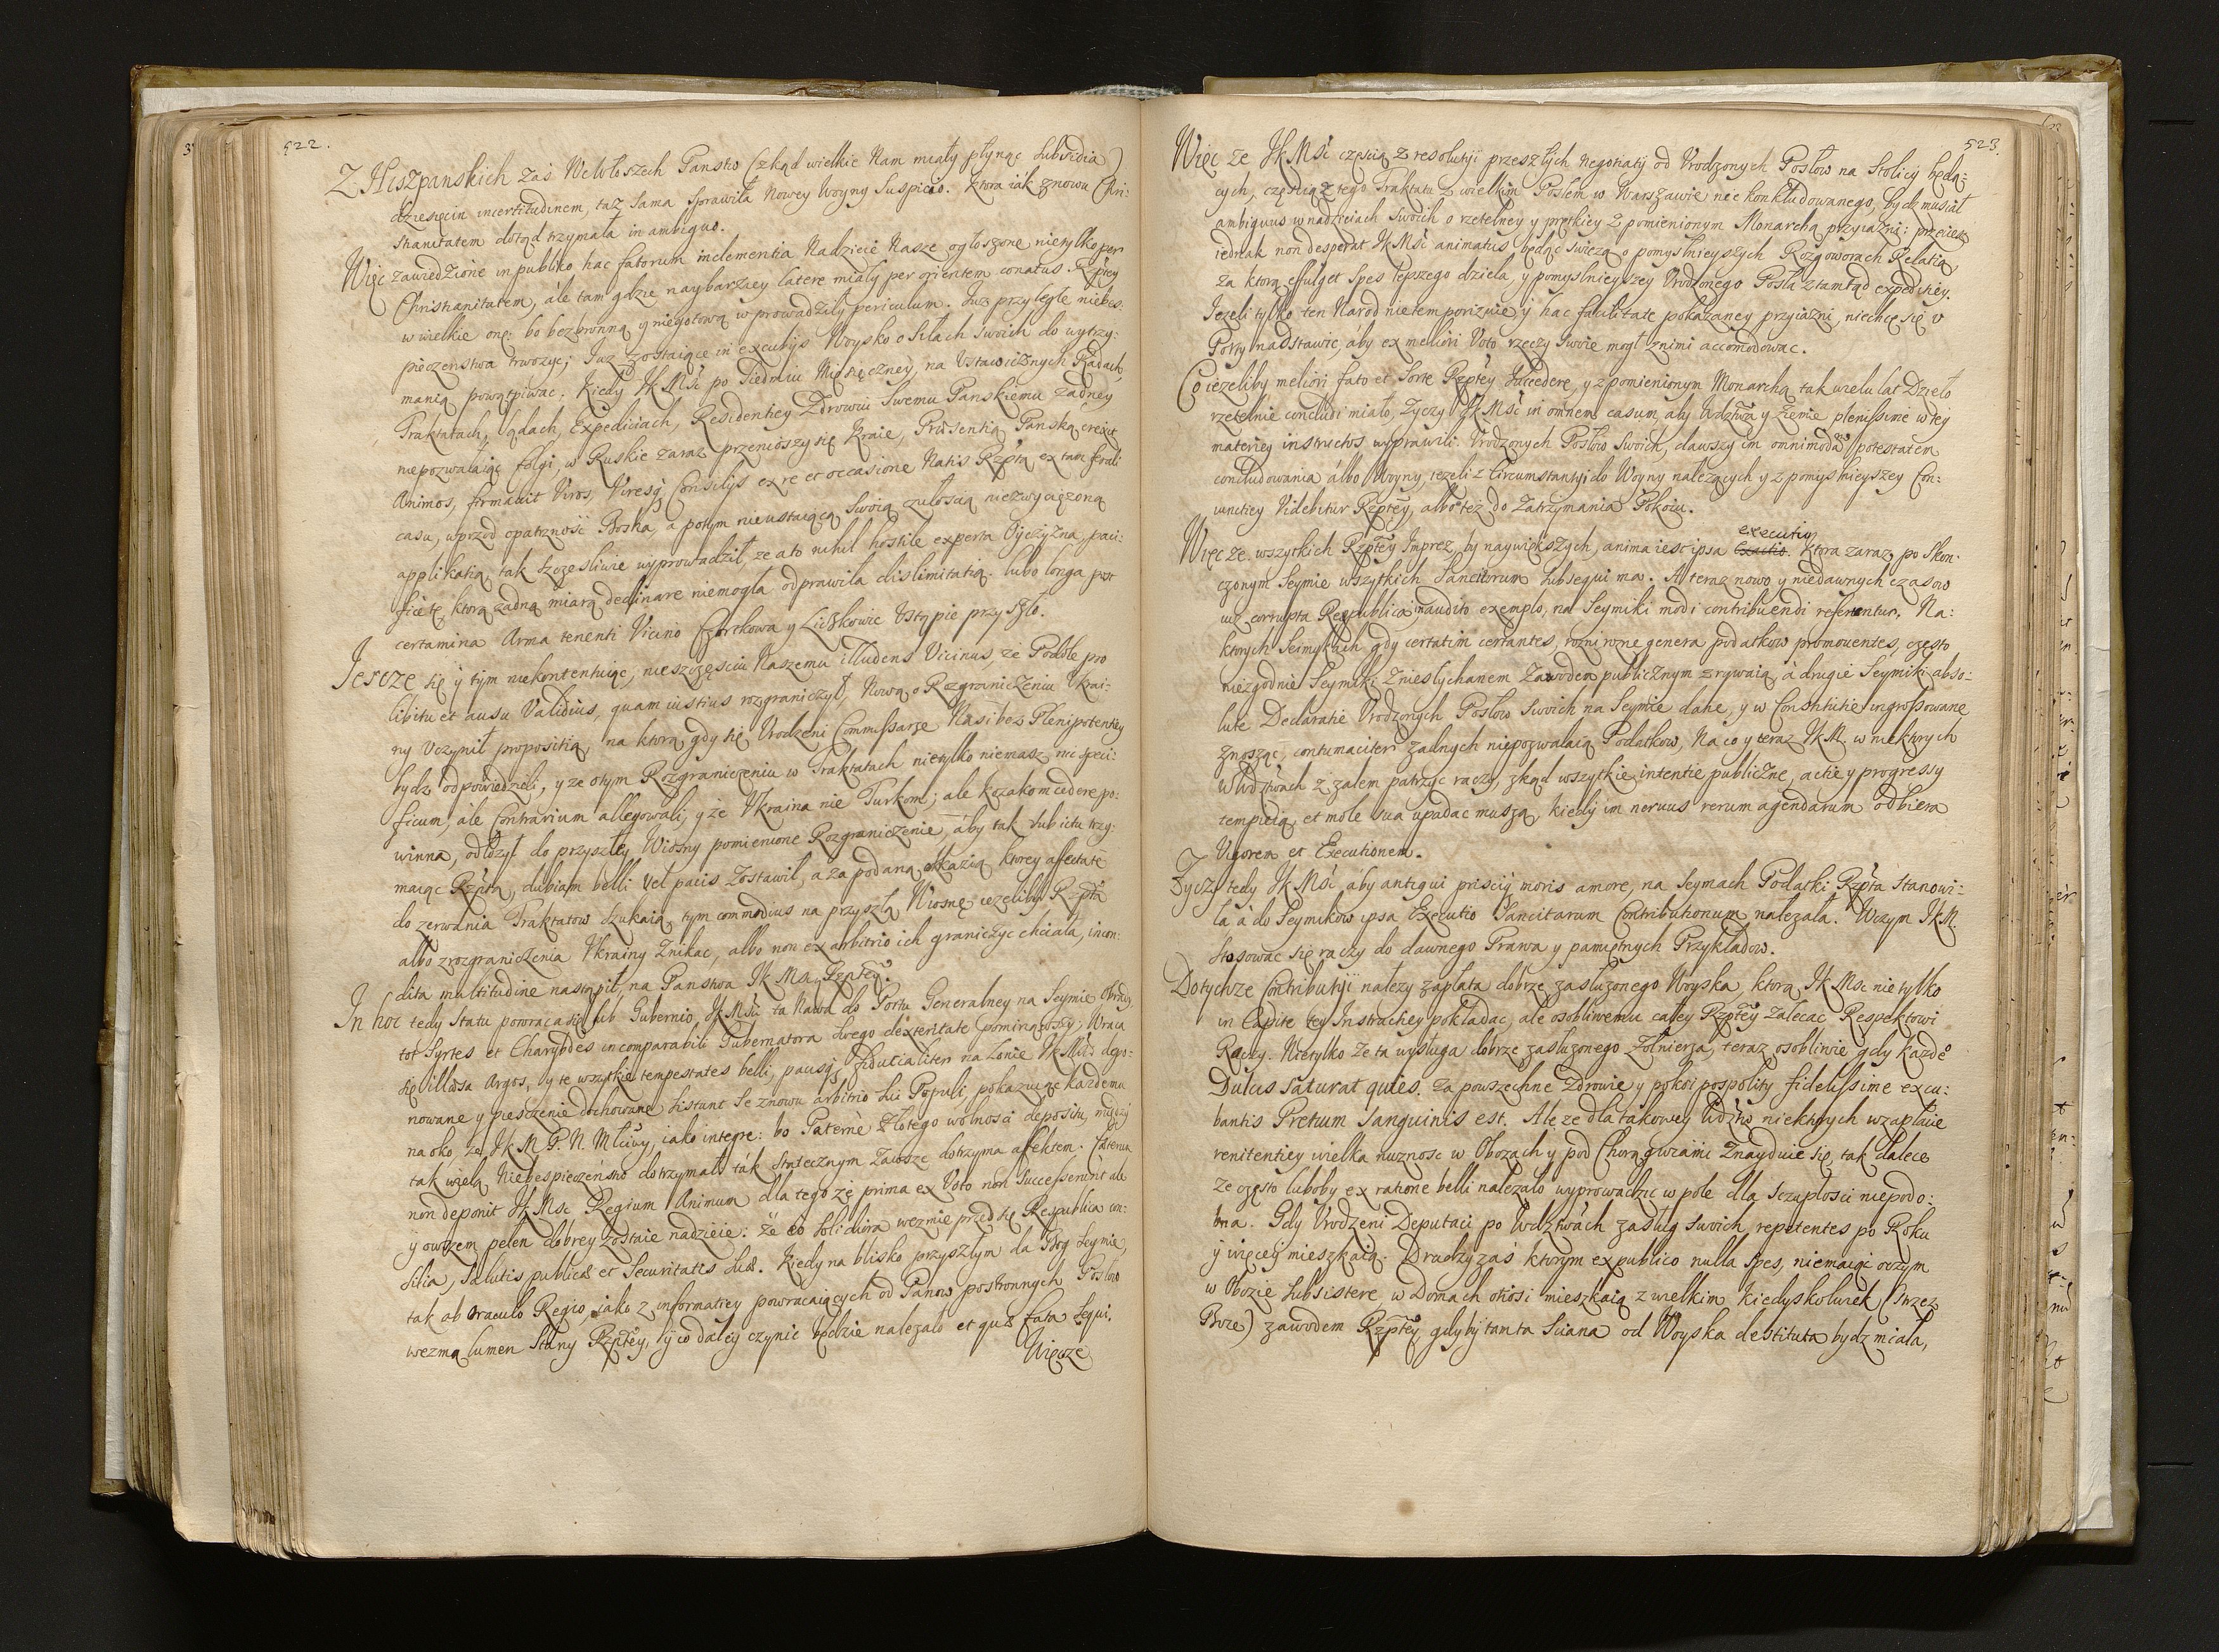 522.
Z Hiszpanskich zaś We Włoszech Panstw (zkąd wielkie Nam miały płynąc Subsidia)
dziesięcin incertitudinem, taż sama sprawiła Nowey Woyny Suspicio. Ktora iak znowu Chri:
stianitatem dotąd trzymała in ambiguo.
Więc zawiedzione in publico hac fatorum inclementia Nadzieie Nasze ogłoszone nietylko per
Christianitatem, ále tam gdzie naybarziey latere miały per orientem conatus Rzptey
w wielkie one: bo bezbronną y niegotową wprowadziły periculum. Iuz przyległe niebes:
pieczenstwa trwożyc; Iuz zostaiące in excubijs Woysko o siłach swoich do wytrzy:
mania powątpiwac. Kiedy JKMść po Siedmiu Miesięczney, na Ustawicznych Radach,
Traktatach, Sądach, Expediciach, Residentiey Zdrowiu Swemu Panskiemu żadney
niepozwalaiąc folgi, w Ruskie zaraz przeniosszy się Kraie, Præsentią Panską erexit
Animos, firmauit Viros, Viresq Consilijs ex re et occasione Natis Rzptą ex tam ferali
casu, wprzod opatrzność Boska, a potym nieustaiącą Swoią czułoscią niezwyciężoną
applikatią tak szczęsliwie wyprowadził, ze a to nihil hostile experta Oyczyzna, paci:
ficię tę ktorą żadną miarą declinare niemogła odprawiła dislimitatią. lubo longa post
certamina Arma tenenti Vicino Czortkowa y Liczkowic Ustąpic przyszło.
Jescze się y tym niekontentuiąc, nieszczęsciu Naszemu illudens Vicinus, że Podole pro
libitu et ausu Validius, quam iustius rozgraniczył, Nową o Rozgraniczeniu Vkrai:
ny Vczynił propositią, na ktorą gdy się Vrodzeni Commissarze Nasi bez Plenipotentiey
bydz odpowiedzieli, y ze otym Rozgraniczeniu w Traktatach nietylko niemasz nic speci:
ficum, ále contrarium allegowali, y że Vkraina nie Turkom; ale Kozakom cedere po:
winna, odłożył do przyszłey Wiosny pomienione Rozgraniczenie, áby tak sub ictu trzy:
maiąc Rzptą, dubiam belli vel pacis Zostawił, a za podaną okkazią ktorey affectate
do zerwania Traktatow szukaią, tym commodius na przyszłą Wiosnę, iezeliby Rzpta
albo zrozgraniczenia Vkrainy Znikac, albo non ex arbitrio ich graniczyc chciała, incon:
dita multitudine nastąpił, na Panstwa JKMsci y Rzptey.
In hoc tedy Statu powraca się sub Gubernio JKMści ta Nawa do Portu Generalney na Seymie Obrady
tot Syrtes et Charybdes incomparabili Gubernatora Swego dexteritate pominąwszy; Wraca
się illæsa Argos, y te wszytkie tempestates belli, pacisq fiducialiter na Łonie JKMści depo:
nowane y piesczenie dochowane Sistunt Se znowu arbitrio Sui Populi, pokazuiąc każdemu
na oko, że JKM P. N. Młciwy, iako integre: bo Paterne Złotego wolnosci depositu, między
tak wielą Niebespieczenstw dotrzymał ták Statecznym Zawsze dotrzyma affektem. Cæterum
non deponit JKMsc Regium Animum dla tego że prima ex Voto non Successerunt ale
y owszem pełen dobrey zostaie nadzieie: Ze co solidiora wezmie przed się Respublica con:
silia, Salutis publicæ et Securitatis suæ. Kiedy na blisko przyszłym da Bog Seymie,
tak ab oraculo Regio, iako z informatiey powracaiących od Panow postronnych Posłow
wezmą lumen Stany Rzptey, co daley czynic będzie należało et quæ fata Sequi.
Więcże
523.
Więc że JKMść częscią z resolutij przeszłych Negotiatij od Vrodzonych Posłow na Stolicy będą:
cych, częscią z tego Traktatu z wielkim Posłem w Warszawie niekonkludowanego, bydz musiał
ambiguus w nadzieiach Swoich o rzetelney y prętkiey z pomienionym Monarchą przyiazni: przecież
iednak non desperat JKMść animatus będąc swieżą o pomyslnieyszych Rozgoworach Relatią,
Za ktorą effulget Spes lepszego dzieła, y pomyslnieyszey Vrodzonego Posła ztamtąd expeditiey.
Jezeli tylko ten Narod nietemporizuie y hac facilitate pokazaney przyiazni, niechcę się v
Porty nadstawic, áby ex meliori Voto rzeczy Swoie mogł znimi accomodowac.
Co iezeliby meliori fato et Sorte Rzptey Succedere, y z pomienionym Monarchą tak wielu lat Dzieło
rzetelnie concludi miało, Zyczy JKMść in omnem casum, aby Wdztwa y Ziemie plenissime w tey
materiey instructos wyprawili Vrodzonych Posłow Swoich, dawszy im omnimodā potestatem
concludowania álbo Woyny, iezeli z Circumstantij do Woyny należących y z pomyslnieyszey Con:
iunctiey Videbitur Rzptey, albo też do Zatrzymania Pokoiu.
Więc że wszytkich Rzptey Imprez, by naywiększych, anima iest ipsa Exactio. executio Ktora zaraz po Skon:
czonym Seymie wszytkich Sancitorum Subsequi ma. A teraz nowo y niedawnych czasow
uż corrupta Respublica inaudito exemplo, na Seymiki modi contribuendi referuntur. Na:
ktorych Seimykach gdy certatim certantes, rozni rozne genera podatkow promouentes, często
niezgodnie Seymiki Zniesłychanem Zawodem publicznym zrywaią, á drugie Seymiki abso:
lute Declaratie Vrodzonych Posłow Swoich na Seymie dane, y w Constitutie ingrossowane
Znosząc, contumaciter żadnych niepozwalaią Podatkow, Na co y teraz JKM. w niektorych
Wdztwach z żalem patrzyc raczy, zkąd wszytkie intentie publiczne, actie y progressy
tempieią, et mole sua upadac muszą, kiedy im neruus rerum agendarum odbiera
Vigorem et Executionem.
Zyczy tedy JKMść, aby antiqui prisciq moris amore, na Seymach Podatki Rzpta Stanowi:
ła á do Seymikow ipsa Executio Sancitarum Contributionum należała. Wczym JKM.
Stosowac się raczy do dawnego Prawa y pamiętnych Przykładow.
Dotychże Contributij należy zapłata dobrze zasłużonego Woyska, ktorą JKMsc nietylko
in Capite tey Instructiey pokładac, ale osobliwemu całey Rzptey Zalecac Respektowi
Raczy. Nietylko że ta wysługa dobrze zasłużonego Zołnierza, teraz osobliwie gdy każdeo
Dulcis Saturat quies. Za powszechne Zdrowie y pokoi pospolity fidelissime excu:
bantis Pretium Sanguinis est. Ale że dla takowey Wdztw niektorych wzapłacie
renitentiey wielka nuznosc w Obozach y pod Chorągwiami Znayduie się, tak dalece
że często luboby ex ratione belli należało wyprowadzic w pole dla szczupłości niepodo:
bna. Gdy Vrodzeni Deputaci po Wdztwach zasług swoich, repetentes po Roku
y więcey mieszkaią. Drudzy zaś ktorym ex publico nulla Spes, niemaiąc oczym
w Obozie Subsistere w Domach otiosi mieszkaią z wielkim kiedyszkolwiek (strzez
Boże) zawodem Rzptey, gdyby tamta Sciana od Woyska destituta bydz miała,